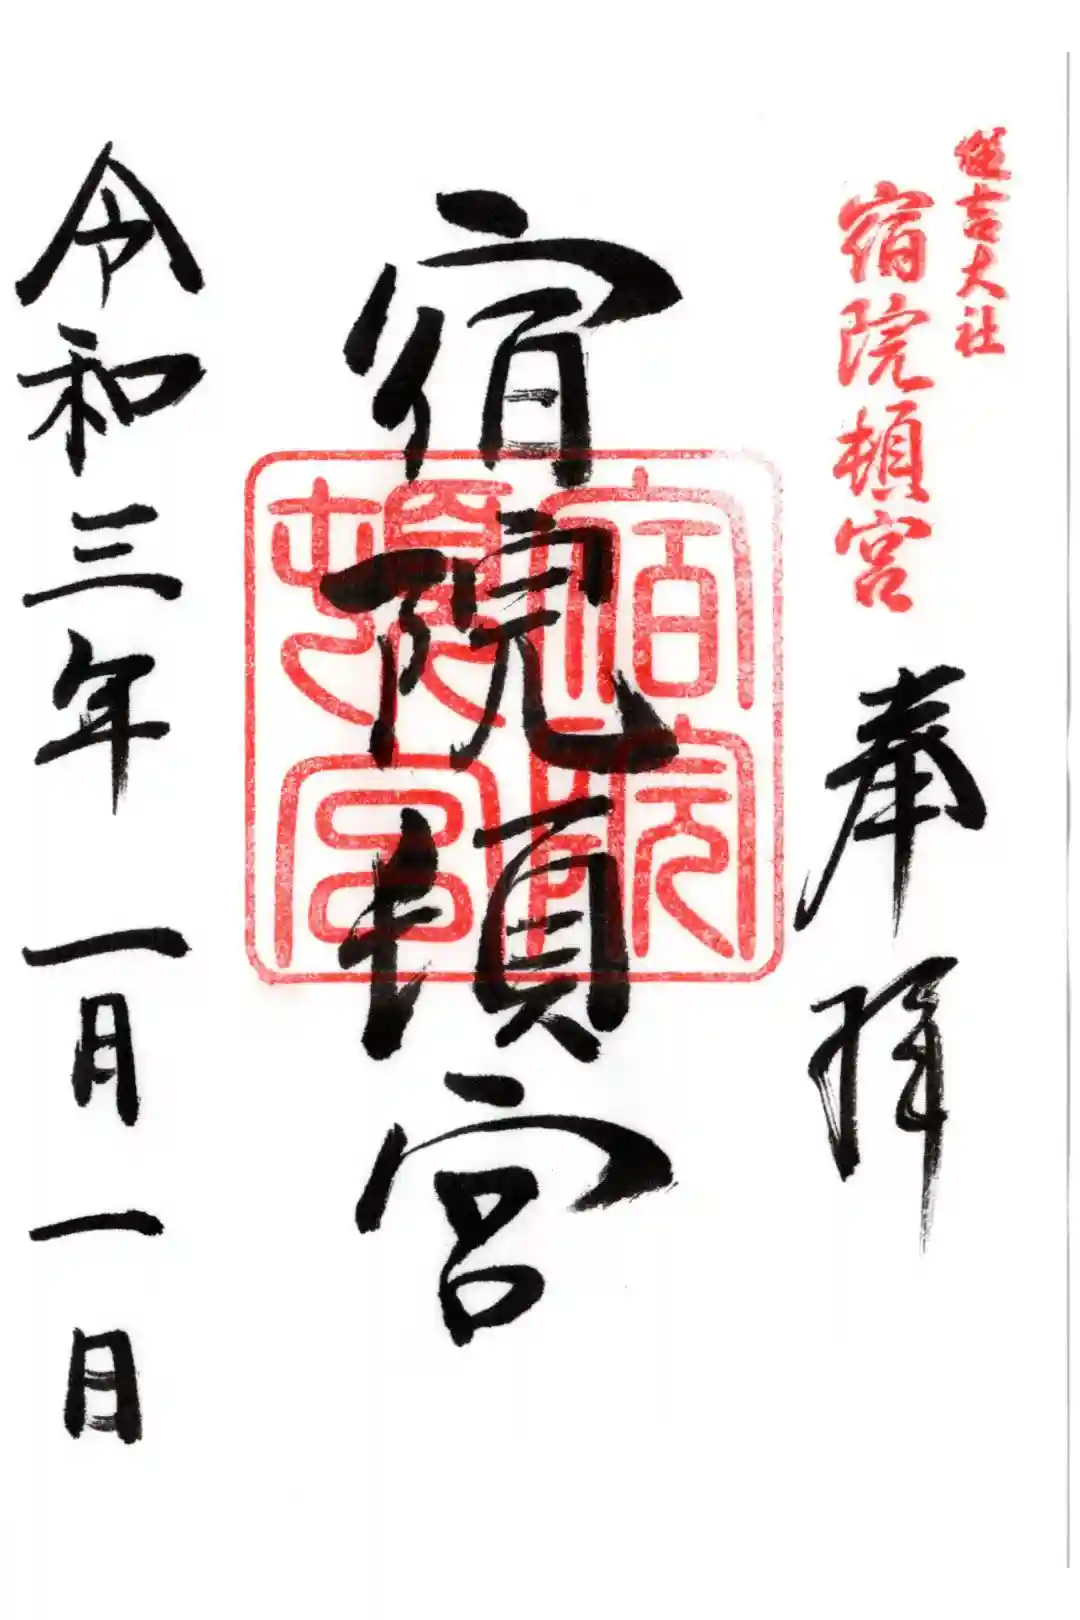 住吉大社
宿院頓宮
奉拝
宿院頓宮
宿院頓宮
令和三年一月一日